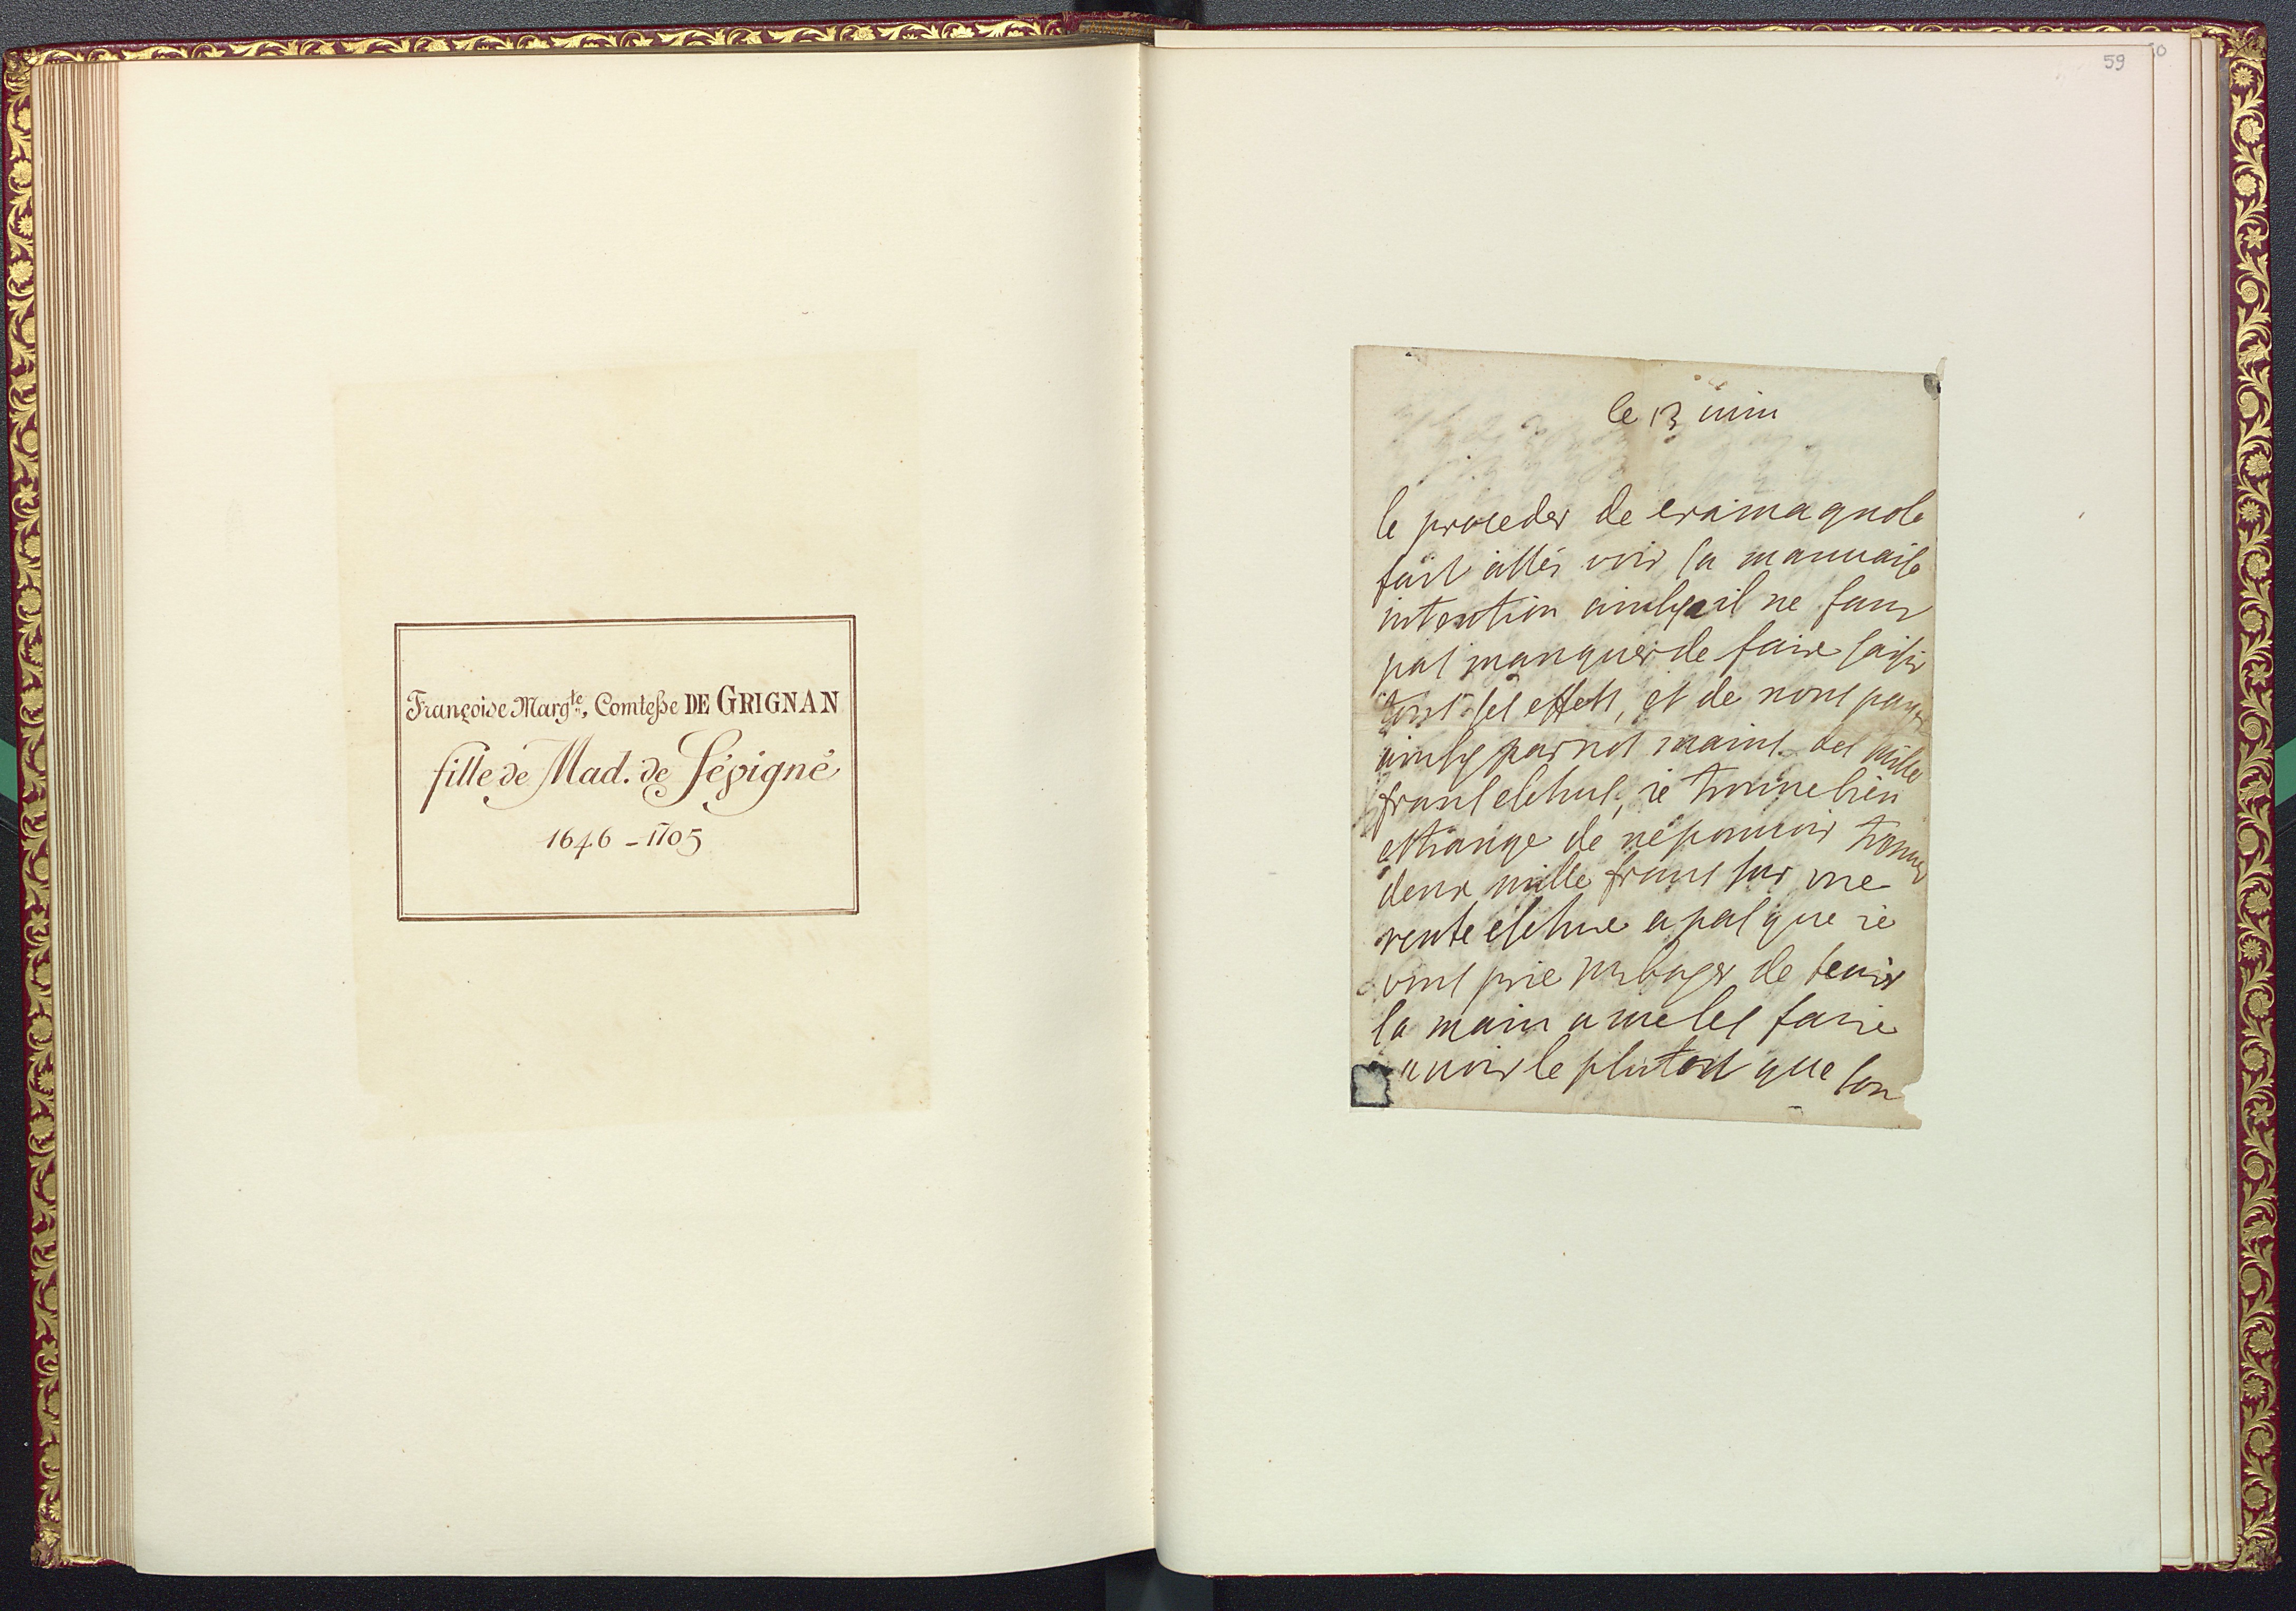 Françoise Marg.te, Comtesse DE GRIGNAN
fille de Mad. de Sévigné
1646 - 1705
59
le 13 iuin
le proceder de
fait assés voir sa mauuaise
intention ainsy il ne faut
pas manquer de faire saisir
tous ses effets, et de nous payer
ainsy par nos mains des mille
frans ie trouue bien
estrange de ne pouuoir trouuer
deux mille frans sur vne
rente a pas que ie
vous prie de tenir
la main a me les faire
auoir le plutost que lon